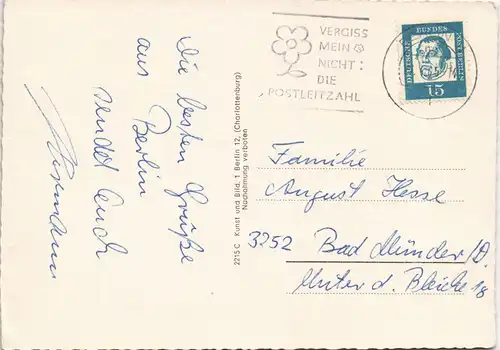 Die besten Grüße
aus Berlin
sendet Euch
2215 C Kunst und Bild, 1 Berlin 12, (Charlottenburg)
Nachahmung verboten
VERGISS
MEIN
NICHT:
DIE
POSTLEITZAHL
DEUTSCHE BUNDESPOST BERLIN
15
Familie
August Hesse
3252 Bad Münder/D.
Unter d. Bleiche 18